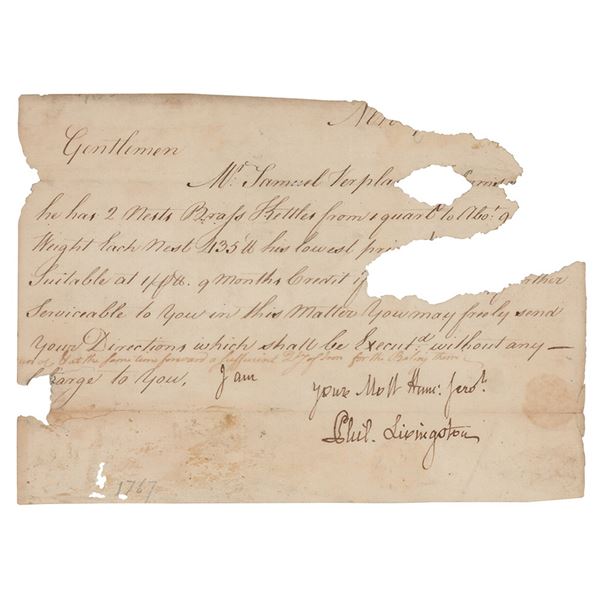 New
Gentlemen
Mr. Samuel Verpla
he has 2 Nests Brass Kettles from 1 quart to Abot. 9
Weight Each Nest 135 lb his lowest pri
Suitable at 9 Months Credit if rther
Serviceable to You in this Matter You may freely send
Your Directions which shall be Executd without any —
& at the same time forward a sufficient of Iron for the
Charge to You, I am
Your Most Hume. Servt.
Phil. Livingston
1767